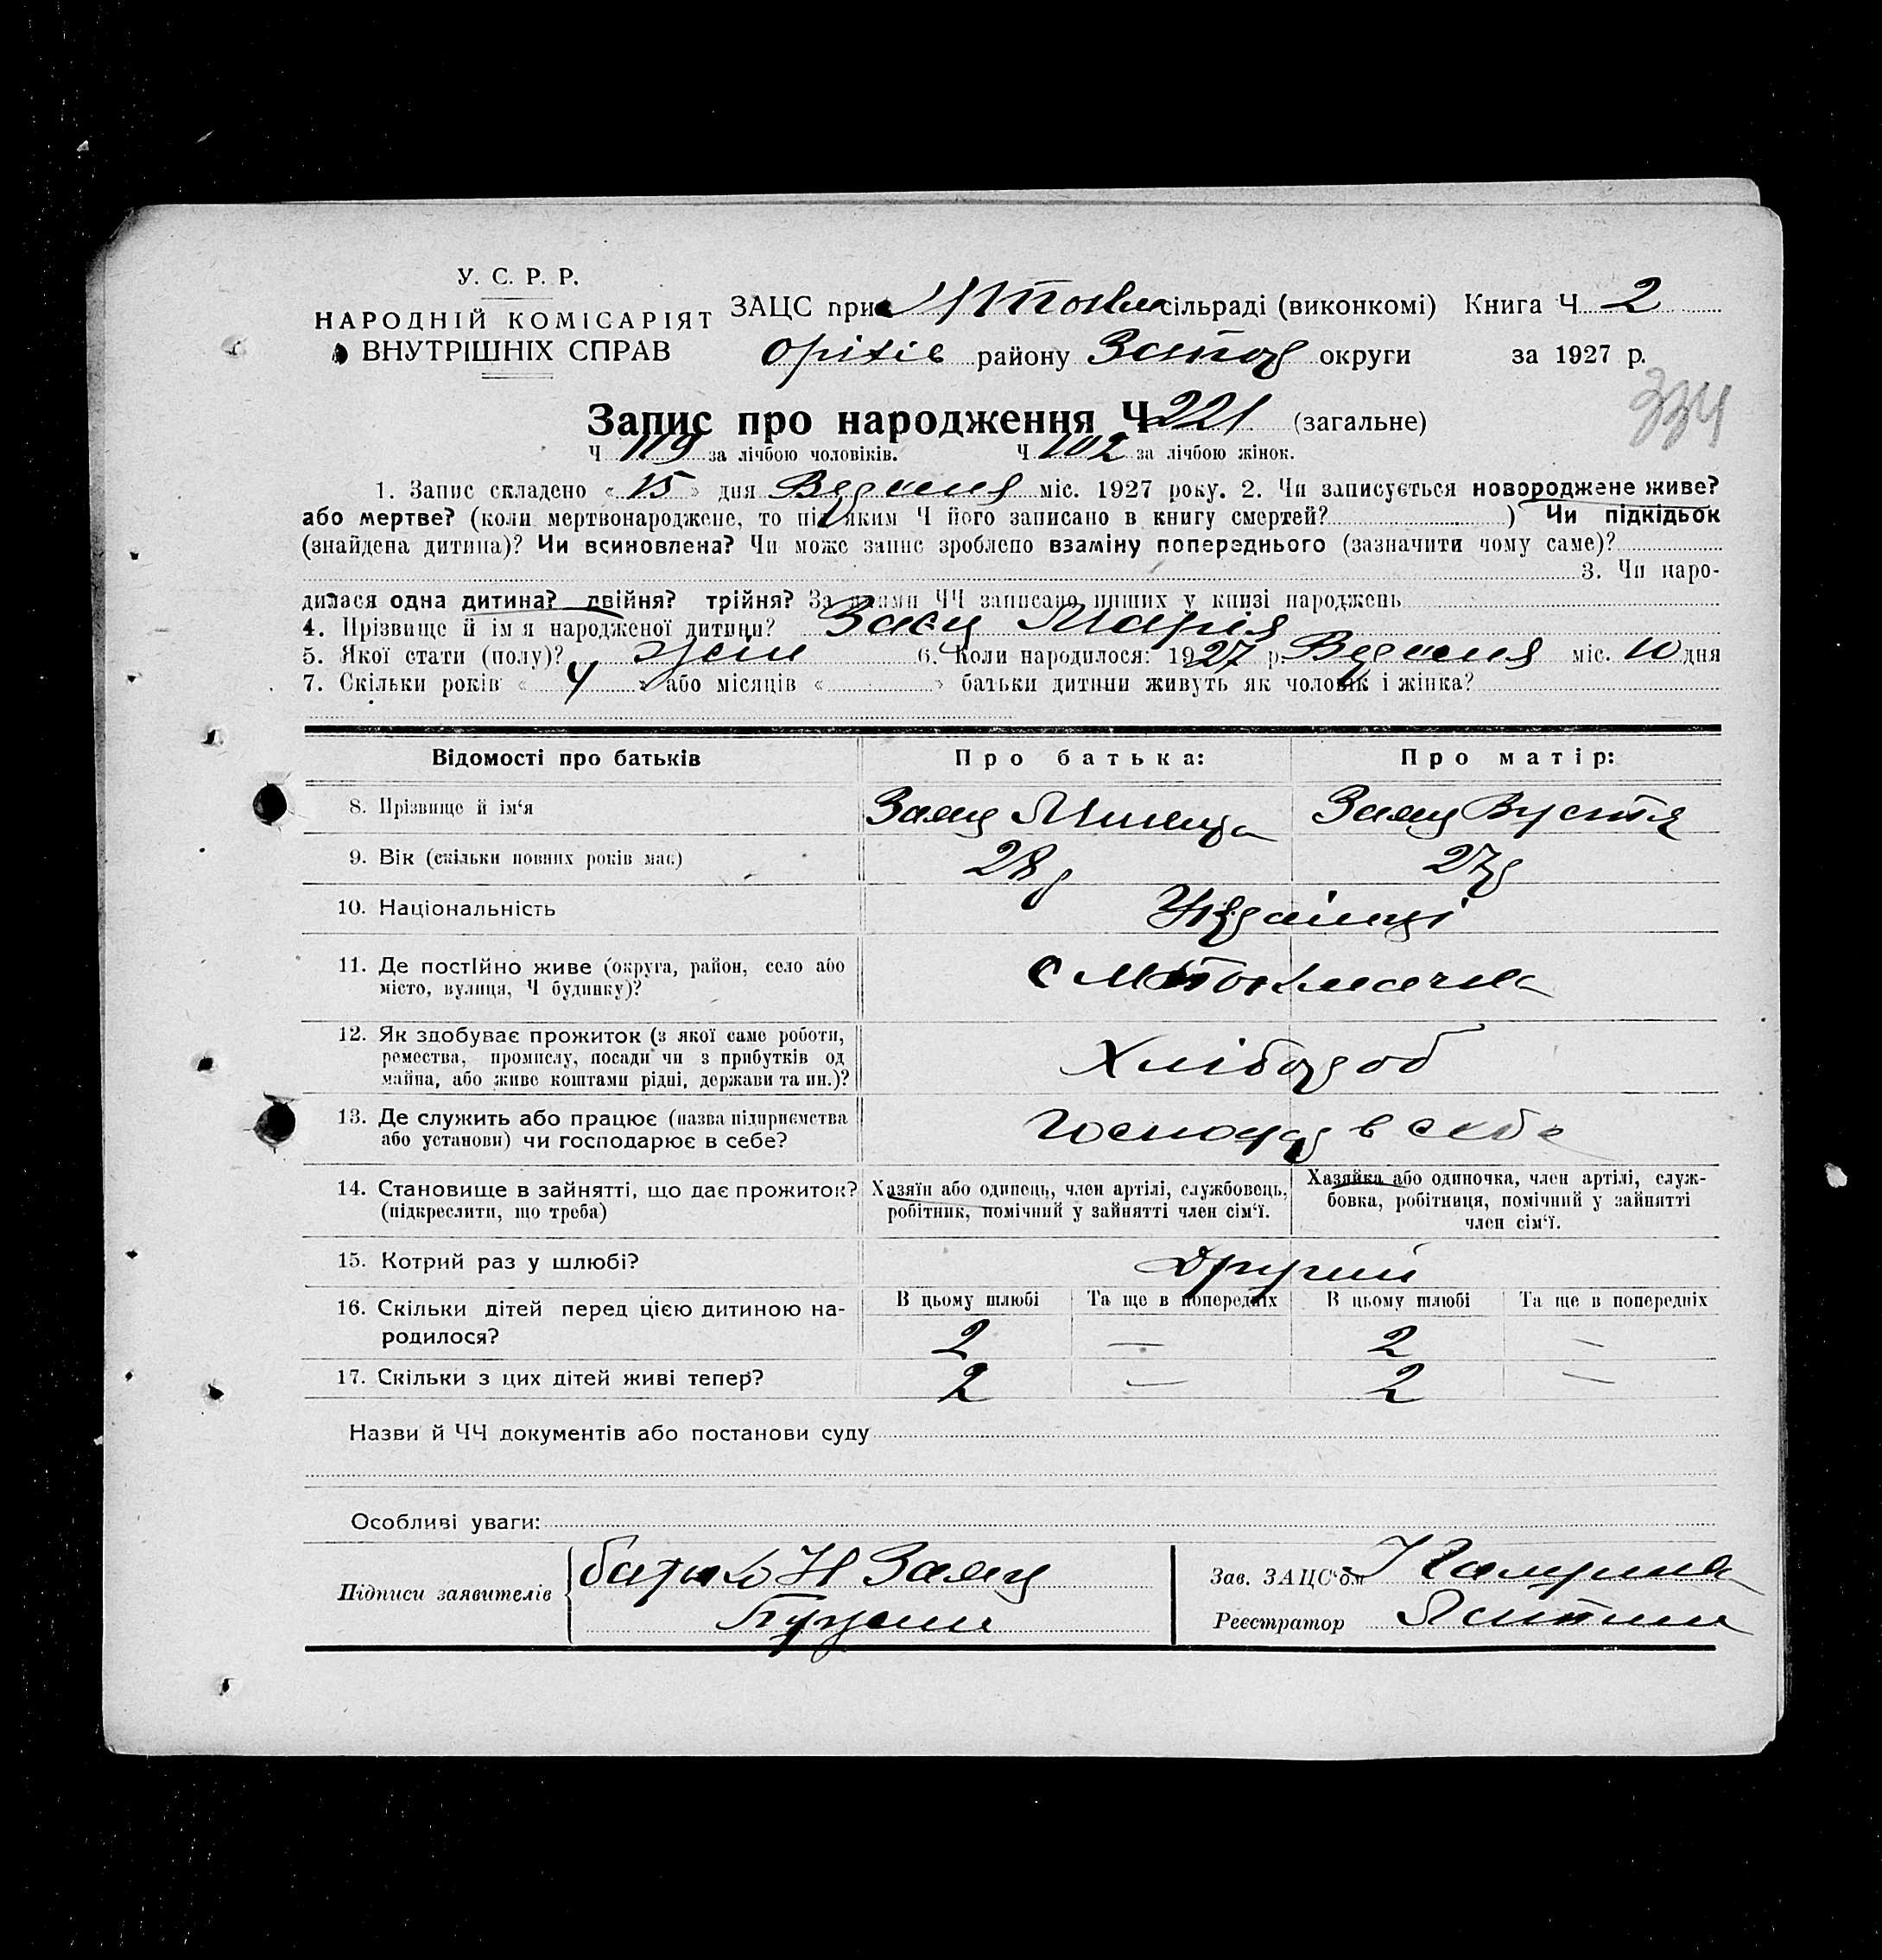 У. С. Р. Р.
НАРОДНІЙ КОМІСАРІЯТ
ВНУТРІШНІХ СПРАВ
ЗАЦС при сільраді (виконкомі) Книга Ч 2
Оріхів району Запор округи за 1927 р.
334
Запис про народження Ч 221 (загальне)
Ч 119 за лічбою чоловіків. Ч 102 за лічбою жінок.
1. Запис складено « 15 » дня міс. 1927 року. 2. Чи записується новороджене живе?
або мертве? (коли мертвонароджене, то під яким Ч його записано в книгу смертей? ) Чи підкідьок
(знайдена дитина)? Чи всиновлена? Чи може запис зроблено взаміну попереднього (зазначити чому саме)?
3. Чи наро-
дилася одна дитина? двійня? трійня? За якими ЧЧ записано инших у книзі народжень
4. Прізвище й ім я народженої дитини? Заєць Марія
5. Якої стати (полу)? жін 6. Коли народилося: 1927 р. міс. 10 дня
7. Скільки років « 4 » або місяців « » батьки дитини живуть як чоловік і жінка?
Відомості про батьків Про батька: Про матір:
8. Прізвище й ім‘я Заяц Заяц Вустя
9. Вік (скільки повних років має) 28 р 27 р
10. Національність Українці
11. Де постійно живе (округа, район, село або
місто, вулиця, Ч будинку)? с М Токмачка
12. Як здобуває прожиток (з якої саме роботи,
ремества, промислу, посади чи з прибутків од
майна, або живе коштами рідні, держави та ин.)? Хлібороб
13. Де служить або працює (назва підприємства
або установи) чи господарює в себе? Господар в себе
14. Становище в зайнятті, що дає прожиток?
(підкреслити, що треба)
Хазяїн або одинець, член артілі, службовець,
робітник, помічний у зайнятті член сім‘ї.
Хазяйка або одиночка, член артілі, служ-
бовка, робітниця, помічний у зайнятті
член сім‘ї.
15. Котрий раз у шлюбі? Другий
16. Скільки дітей перед цією дитиною на-
родилося?
В цьому шлюбі Та ще в попередніх В цьому шлюбі Та ще в попередніх
2 — 2 —
17. Скільки з цих дітей живі тепер? 2 — 2 —
Назви й ЧЧ документів або постанови суду
Особливі уваги:
Підписи заявителів батько Н Заяц
Зав. ЗАЦС‘ом
Реєстратор